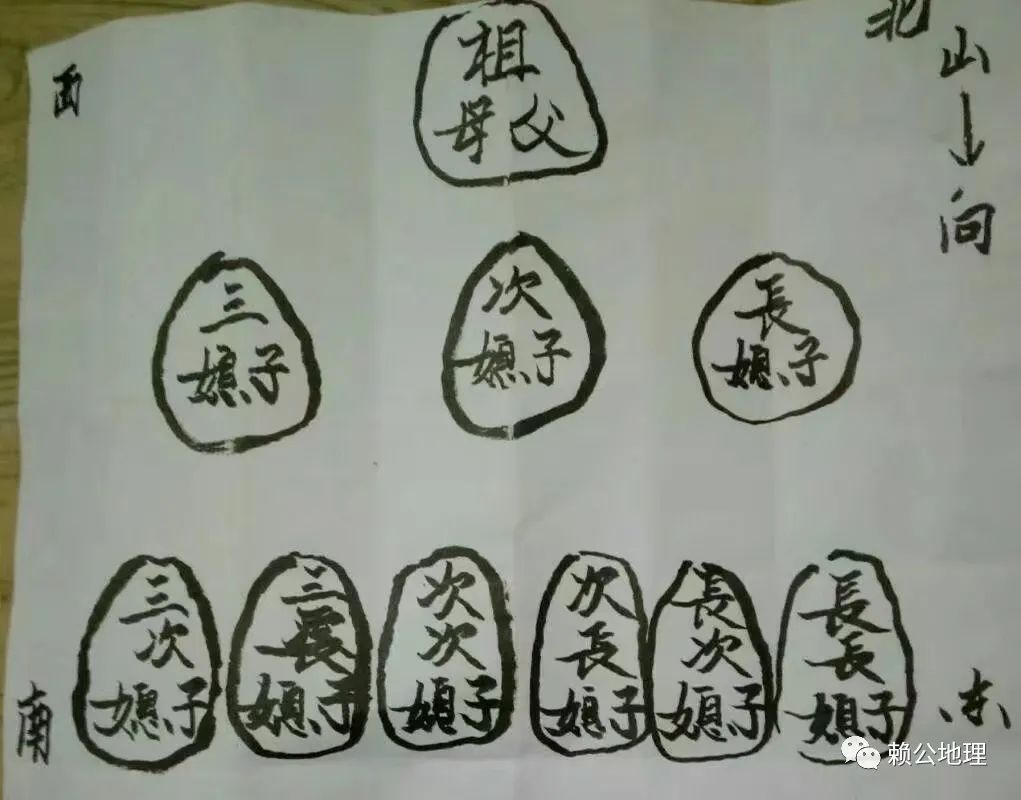 北
山
↓
向
西
祖
母父
三
媳子
次
媳子
長
媳子
三
次
媳子
三
長
媳子
次
次
媳子
次
長
媳子
長
次
媳子
長
長
媳子
南
东
赖公地理